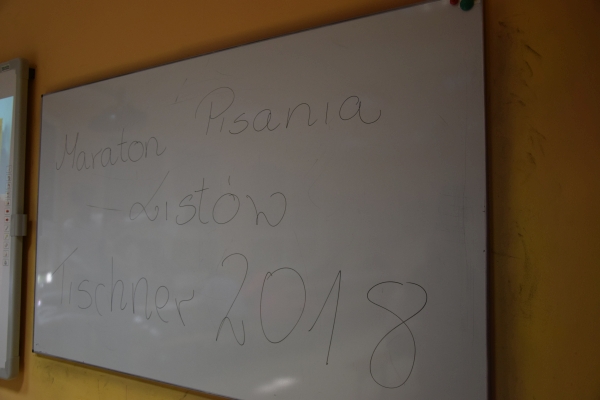 Maraton Pisania
- Listów
Tischner 2018